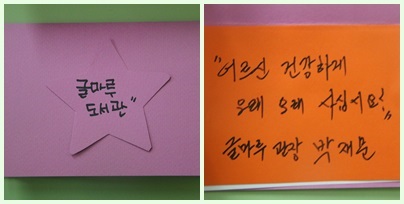 글마루
도서관"
"어르신 건강하게
오래 오래 사십시요!"
글마루 관장 박재문